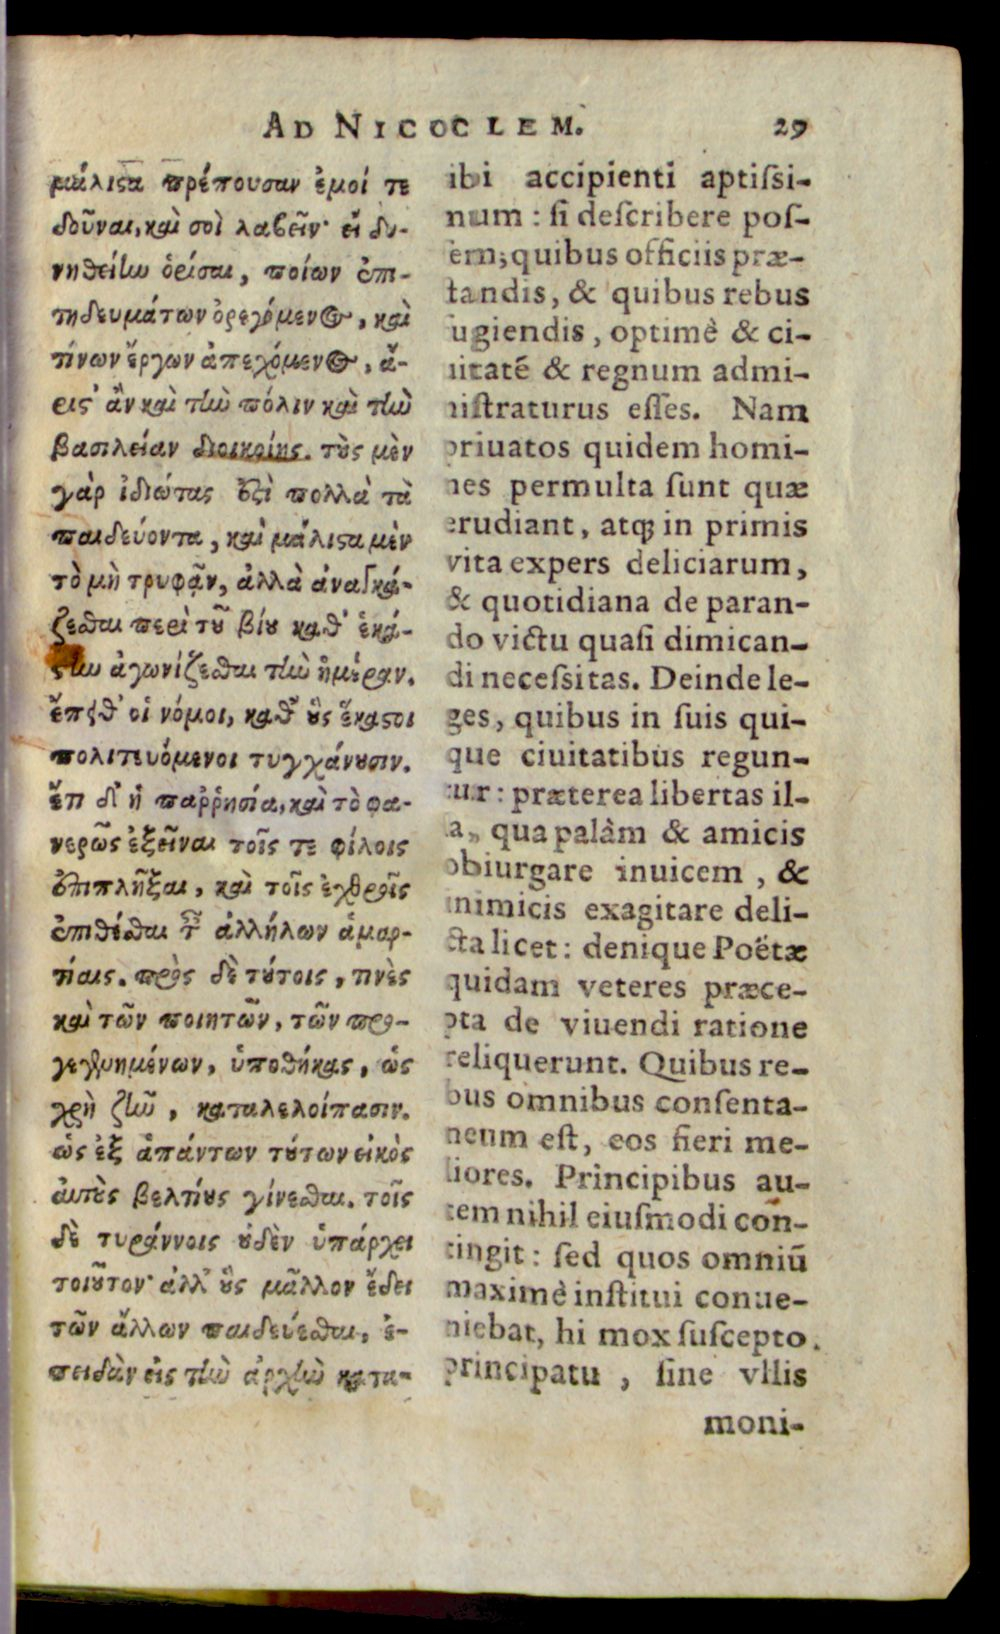 AD NICOCLEM. 29
μάλιςα πρέπουσαν ἐμοί τε
δοῦναι, καὶ σοὶ λαβεῖν· εἰ δυ-
νηθείην ὁρίσαι, ποίων ἐπι-
τηδευμάτων ὀρεγόμενος, καὶ
τίνων ἔργων ἀπεχόμενος, ἄ-
εις' ἂν καὶ τὴν πόλιν καὶ τὴν
βασιλείαν διοικοίης. τοὺς μὲν
γὰρ ἰδιώτας ἐςὶ πολλὰ τὰ
παιδεύοντα, καὶ μάλιςα μὲν
τὸ μὴ τρυφᾶν, ἀλλὰ ἀναγκά-
ζεσθαι περὶ τοῦ βίου καθ' ἑκά-
ςην ἀγωνίζεσθαι τὴν ἡμέραν.
ἔπειθ' οἱ νόμοι, καθ' οὓς ἕκαςοι
πολιτευόμενοι τυγχάνουσιν.
ἔτι δ' ἡ παῤῥησία, καὶ τὸ φα-
νερῶς ἐξεῖναι τοῖς τε φίλοις
ἐπιπλῆξαι, καὶ τοῖς ἐχθροῖς
ἐπιθέσθαι τ ἀλλήλων ἁμαρ-
τίαις. πρὸς δὲ τούτοις, τινὲς
καὶ τῶν ποιητῶν, τῶν προ-
γεγενημένων, ὑποθήκας, ὡς
χρὴ ζῆν, καταλελοίπασιν.
ὡς ἐξ ἁπάντων τούτων εἰκὸς
αὐτοὺς βελτίους γίνεσθαι. τοῖς
δὲ τυράννοις οὐδὲν ὑπάρχει
τοιοῦτον· ἀλλ' οὓς μᾶλλον ἔδει
τῶν ἄλλων παιδεύεσθαι, ἐ-
πειδὰν εἰς τὴν ἀρχὴν κατα-
ibi accipienti aptiſsi-
mum : ſi deſcribere poſ-
ſem; quibus officiis præ-
ſtandis, & quibus rebus
fugiendis, optimè & ci-
uitatē & regnum admi-
niſtraturus eſſes. Nam
priuatos quidem homi-
nes permulta ſunt quæ
erudiant, atq; in primis
vita expers deliciarum,
& quotidiana de paran-
do victu quaſi dimican-
di neceſsitas. Deinde le-
ges, quibus in ſuis qui-
que ciuitatibus regun-
tur : præterea libertas il-
la, qua palàm & amicis
obiurgare inuicem, &
inimicis exagitare deli-
cta licet : denique Poëtæ
quidam veteres præce-
pta de viuendi ratione
reliquerunt. Quibus re-
bus omnibus conſenta-
neum eſt, eos fieri me-
liores. Principibus au-
tem nihil eiuſmodi con-
tingit : ſed quos omniū
maximè inſtitui conue-
niebat, hi mox ſuſcepto
principatu, ſine vllis
moni-